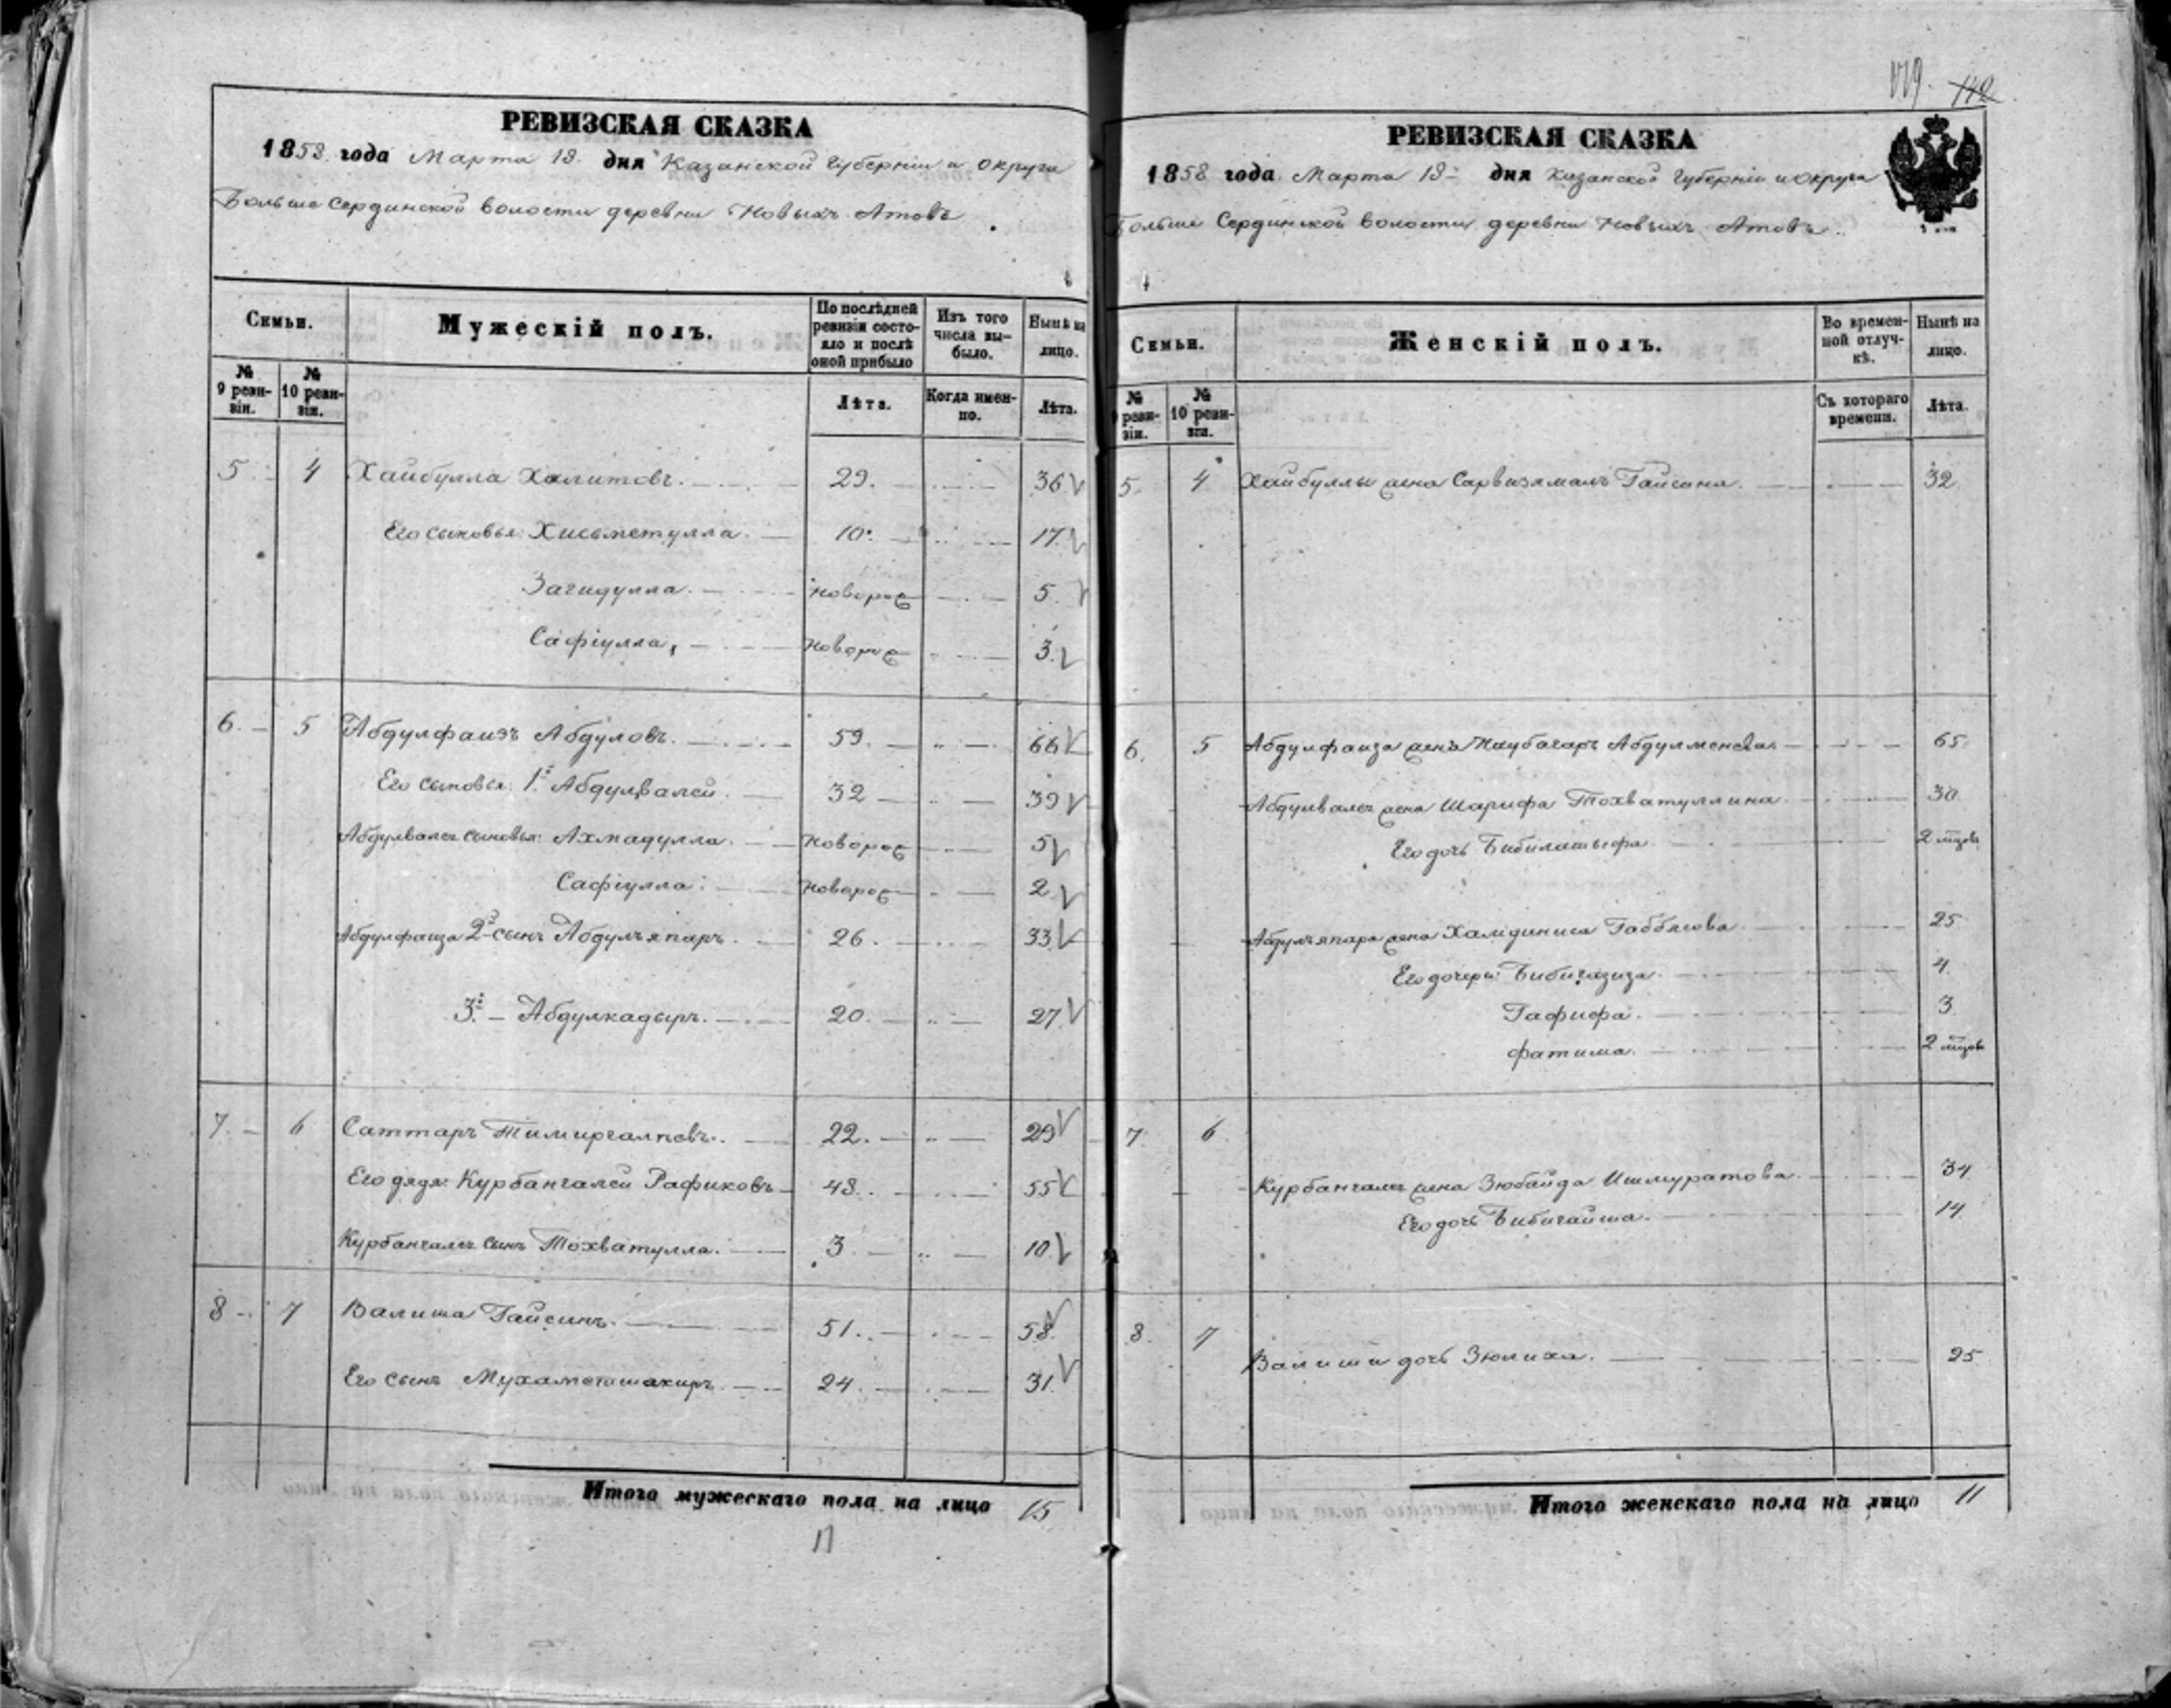 119. 142
РЕВИЗСКАЯ СКАЗКА
1858 года Марта 18 дня Казанской Губерніи и округа
Больше Сердинской волости деревни Новыхъ Атовъ
Семьи.
Мужескій полъ.
По послѣдней ревизіи состояло и послѣ оной прибыло
Изъ того числа выбыло.
Нынѣ на лицо.
№ 9 ревизіи.
№ 10 ревизіи.
Лѣта.
Когда именно.
Лѣта.
5 4 Хайбулла Халитовъ. 29. 36
Его сыновья: Хисьметулла. 10. 17
Загидулла. новорож 5
Сафіулла, новорож 3.
6. 5 Абдулфаизъ Абдуловъ. 59. 66
Его сыновья: 1й Абдулвалей. 32 39
Абдулвалея сыновья: Ахмадулла. новорож 5
Сафіулла: новорож 2
Абдулфаиза 2й сынъ Абдулъяпаръ. 26. 33
3й – Абдулкадыръ. 20. 27
7. 6 Саттаръ Тимиргалиевъ. 22. 29
Его дядя: Курбангалей Рафиковъ 48. 55
Курбангалея сынъ Тохватулла. 3. 10
8 7 Валиша Гайсинъ. 51. 58
Его сынъ Мухаметшакиръ. 24. 31.
Итого мужескаго пола на лицо 15
РЕВИЗСКАЯ СКАЗКА
1858 года Марта 18 дня Казанской Губерніи и округа
Больше Сердинской волости деревни Новыхъ Атовъ.
Семьи.
Женскій полъ.
Во временной отлучкѣ.
Нынѣ на лицо.
№ 9 ревизіи.
№ 10 ревизіи.
Съ котораго времени.
Лѣта.
5. 4 Хайбуллы жена Сарвизямалъ Гайсина. 32
6. 5 Абдулфаиза жена Наубагаръ Абдулменева 65
Абдулвалея жена Шарифа Тохватуллина 30
Его дочь Бибилатыфа 2 мѣсяц
Абдулъяпара жена Хамдиниса Габбясова 25
Его дочери: Бибигазиза. 4
Гафифа. 3
Фатима. 2 мѣсяц
7. 6
Курбангалея жена Зюбайда Ишмуратова. 34
Его дочь Бибигайша. 14
8. 7
Валиши дочь Зюлиха. 25
Итого женскаго пола на лицо 11